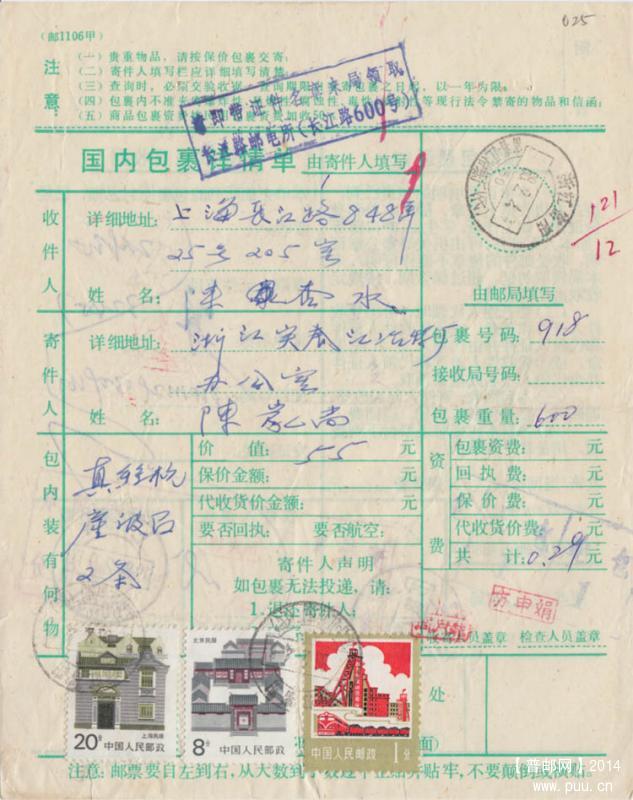 （邮1106甲）
025
注意：
（一）贵重物品，请按保价包裹交寄；
（二）寄件人填写栏应详细填写清楚；
（三）查询时，必须交验收据，查询期限自交寄包裹之日起，以一年为限。
（四）包裹内不准
等现行法令禁寄的物品和信函；
（五）商品包裹资费
长江路邮电所（长江路600号）
国内包裹详情单 由寄件人填写
121
12
收件人
详细地址：上海長江路848弄
25号205室
姓 名：
水
由邮局填写
寄件人
详细地址：浙江
办公室
姓 名：陳 尚
包裹号码：918
接收局号码：
包裹重量：600
包内装有何物
2条
价 值：55元
保价金额：元
代收货价金额：元
要否回执： 要否航空：
寄件人声明
如包裹无法投递，请：
1.退还寄件人；
资费
包裹资费：元
回执费：元
保价费：元
代收货价费：元
共 计：0.29元
方申娟
人员盖章 检查人员盖章
处
面）
20分
上海民居
中国人民邮政
北京民居
8分
中国人民邮政
中国人民邮政
1分
注意：邮票要自左到右，从大数到小数逐个整齐并贴牢，不要颠倒或横贴。
【普邮网】2014
www.puu.cn